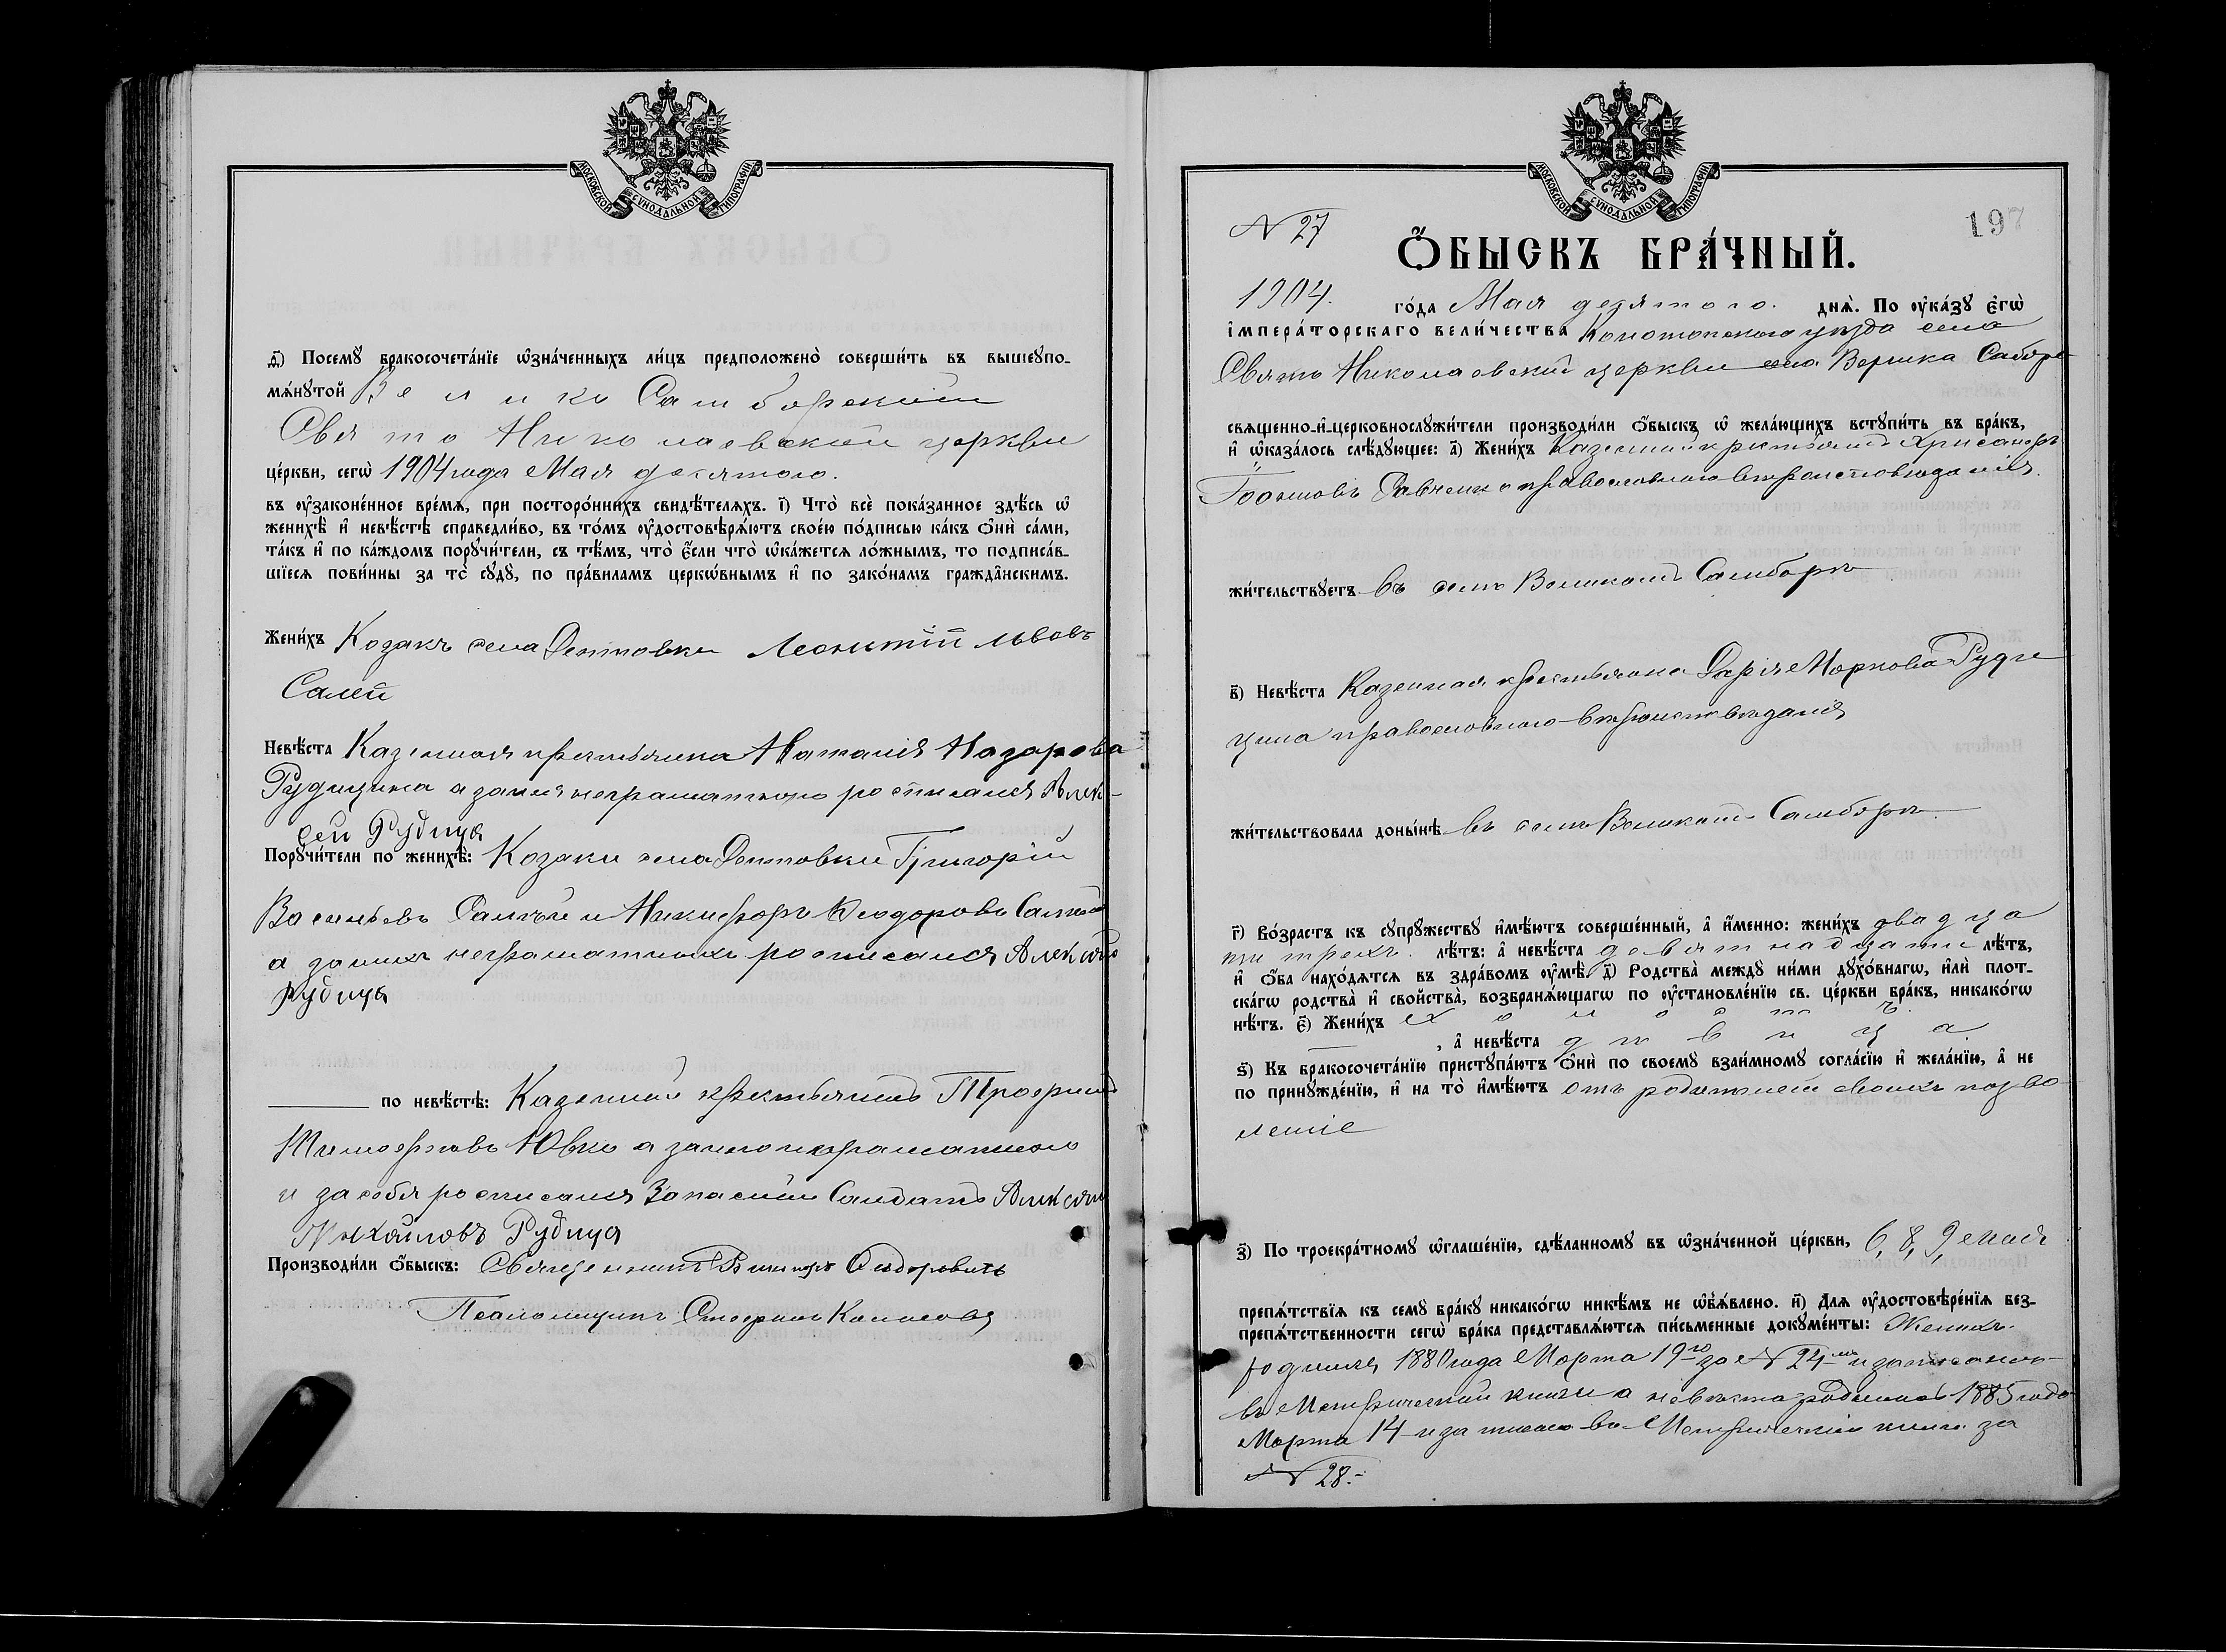 МОСКОВСКОЙ СѴНОДАЛЬНОЙ ТИПОГРАФІИ
д҃) Посемꙋ̀ бракосочета́нїе ѡ҆зна́ченныхъ ли́цъ предположено̀ соверши́ть въ вышеꙋпо-
мѧ́нꙋтой Велико Самборской
Свято Николаевской церкви
це́ркви, сегѡ̀ 1904 года Мая десятого.
въ ᲂу҆зако́ненное вре́мѧ, при посторо́ннихъ свидѣ́телѧхъ. і҃) Что̀ всѐ пока́занное здѣ́сь ѡ҆
женихѣ̀ и҆ невѣ́стѣ справедли́во, въ то́мъ ᲂу҆достовѣрѧ́ютъ свое́ю по́дписью ка́къ ѻ҆нѝ са́ми,
та́къ и҆ по ка́ждомъ порꙋчи́тели, съ тѣ́мъ, что̀ є҆́сли что̀ ѡ҆ка́жетсѧ ло́жнымъ, то подписа́в-
шїесѧ пови́нны за то̀ сꙋдꙋ̀, по пра́виламъ церко́внымъ и҆ по зако́намъ гражда́нскимъ.
Жени́хъ Козакъ села Дептовки Леонтій Львовъ
Салей
Невѣ́ста Казенная крестьянка Наталія Назарова
Рудицина а за нея неграматною росписался Алек-
сей Рудица
Порꙋчи́тели по женихѣ̀: Козаки села Дептовки Григорій
Васильевъ Салѣй и Никифоръ Ѳеодоровъ Салѣй
а за нихъ неграматныхъ росписался Алексѣй
Рудица
по невѣ́стѣ: Казенный крестьянинъ Трофимъ
Тимофѣевъ Ювко а за него неграматного
и за себя росписался Запасный Солдатъ Алексѣй
Михайловъ Рудица
Производи́ли ѻ҆́быскъ: Священникъ Сидоровичъ
Псаломщикъ Стефанъ
МОСКОВСКОЙ СѴНОДАЛЬНОЙ ТИПОГРАФІИ
N 27
197
Ѻ҆́БЫСКЪ БРА́ЧНЫЙ.
1904. го́да Мая десятого. днѧ̀. По ᲂу҆ка́зꙋ є҆гѡ̀
і҆мпера́торскаго вели́чества Конотопского уѣзда села
Свято Николаевской церкви села Велика Самбора
свѧщенно-и҆-церковнослꙋжи́тели производи́ли ѻ҆́быскъ ѡ҆ жела́ющихъ встꙋпи́ть въ бра́къ,
и҆ ѡ҆каза́лось слѣ́дꙋющее: а҃) Жени́хъ Казенный крестьянинъ Хрисанфъ
Савченко православного вѣроисповѣданія.
жи́тельствꙋетъ въ селѣ Великомъ Самборѣ
в҃) Невѣ́ста Казенная крестьянка Дарія Маркова Руди
цина православного вѣроисповѣданія
жи́тельствовала доны́нѣ въ селѣ Великомъ Самборѣ
г҃) Во́зрастъ къ сꙋпрꙋ́жествꙋ и҆мѣ́ютъ соверше́нный, а҆ и҆́менно: жени́хъ двадца
ти трехъ. лѣ́тъ: а҆ невѣ́ста девятнадцати лѣ́тъ,
и҆ ѻ҆́ба нахо́дѧтсѧ въ здра́вомъ ᲂу҆мѣ̀. д҃) Родства̀ междꙋ̀ ни́ми дꙋхо́внагѡ, и҆лѝ плот-
ска́гѡ родства̀ и҆ свойства̀, возбранѧ́ющагѡ по ᲂу҆становле́нїю св. це́ркви бра́къ, никако́гѡ
нѣ́тъ. є҃) Жени́хъ холостъ
, а҆ невѣ́ста дѣвица
ѕ҃) Къ бракосочета́нїю пристꙋпа́ютъ ѻ҆нѝ по своемꙋ̀ взаи́мномꙋ согла́сїю и҆ жела́нїю, а҆ не
по принꙋжде́нїю, и҆ на то̀ и҆мѣ́ютъ отъ родителей своихъ позво
леніе
з҃) По троекра́тномꙋ ѡ҆глаше́нїю, сдѣ́ланномꙋ въ ѡ҆зна́ченной це́ркви, 6, 8, 9, Мая
препѧ́тствїѧ къ семꙋ̀ бра́кꙋ никако́гѡ никѣ́мъ не ѡ҆б̾ѧ́влено. и҃) Длѧ̀ ᲂу҆достовѣре́нїѧ без-
препѧ́тственности сегѡ̀ бра́ка представлѧ́ютсѧ пи́сьменные докꙋме́нты: Женихъ
родился 1880 года Марта 19го за N 24м и записанъ
въ Метрической книги а невѣста родилась 1885 года
Марта 14 и записана въ Метрической книги за
N 28.-